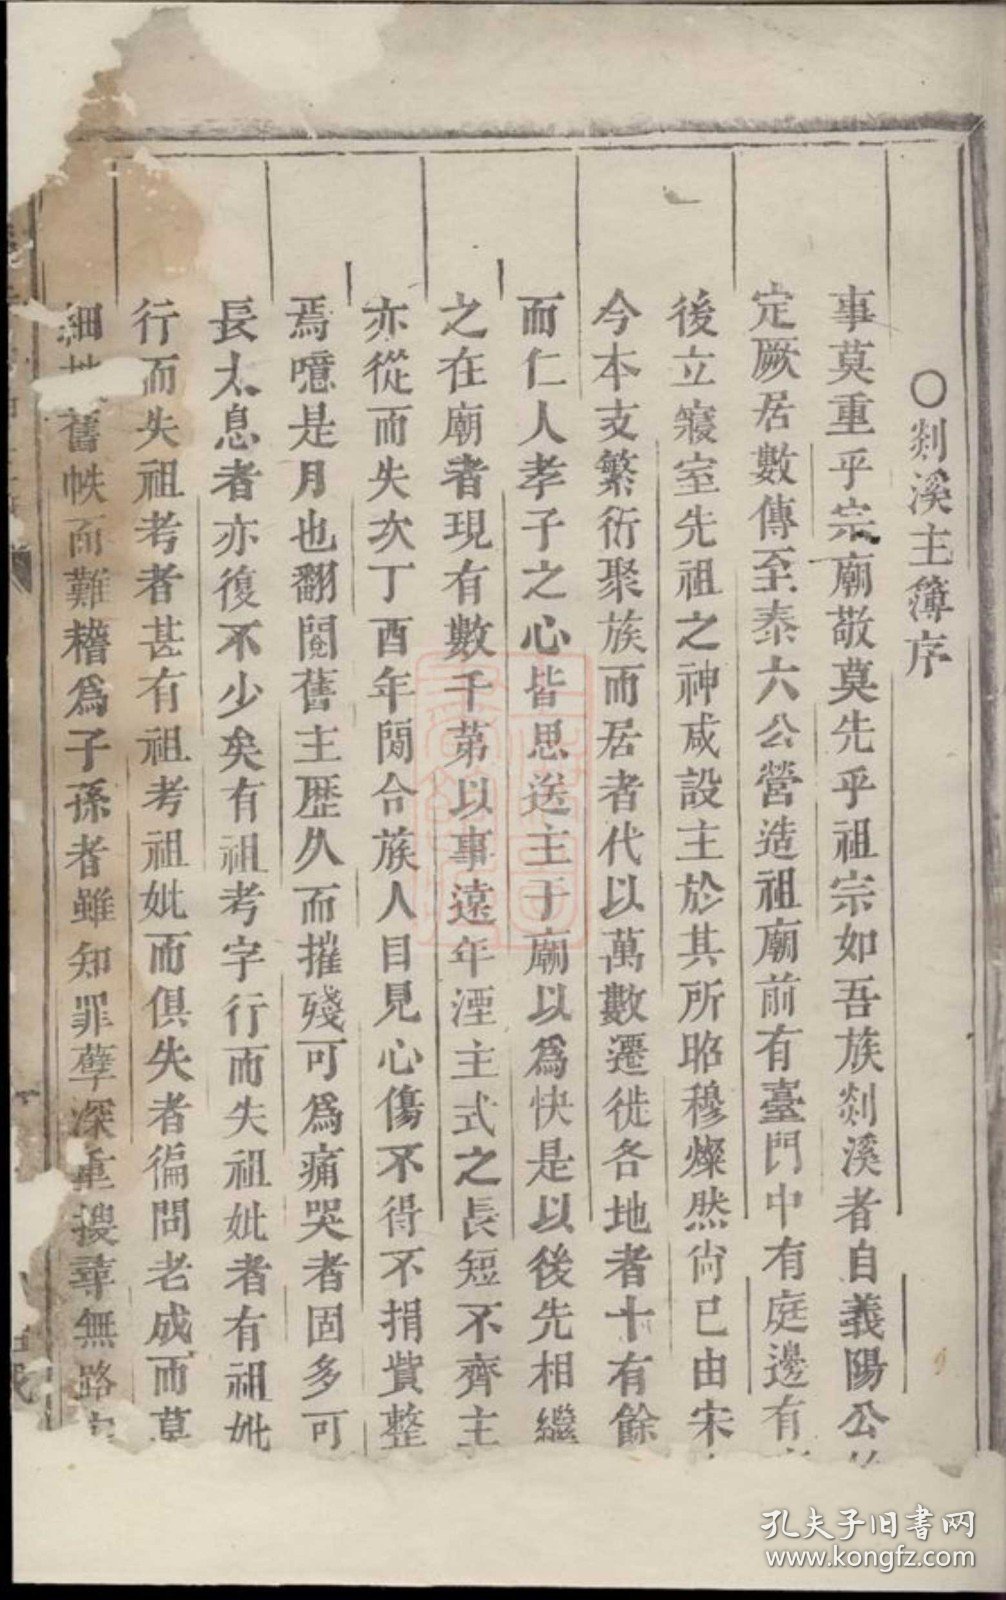 ○剡溪主簿序
事莫重乎宗廟敬莫先乎祖宗如吾族剡溪者自義陽公
定厥居數傳至泰六公營造祖廟前有臺門中有庭邊有
後立寢室先祖之神咸設主於其所昭穆燦然尙已由宋
今本支繁衍聚族而居者代以萬數遷徙各地者十有餘
而仁人孝子之心皆思送主于廟以爲快是以後先相繼
之在廟者現有數千第以事遠年湮主式之長短不齊主
亦從而失次丁酉年閤合族人目見心傷不得不捐貲整
焉噫是月也翻閱舊主歷久而摧殘可爲痛哭者固多可
長太息者亦復不少矣有祖考字行而失祖妣者有祖妣
行而失祖考者甚有祖考祖妣而俱失者徧問老成而莫
細 舊帙而難稽爲子孫者雖知罪孽深重搜尋無路
孔夫子旧书网
www.kongfz.com